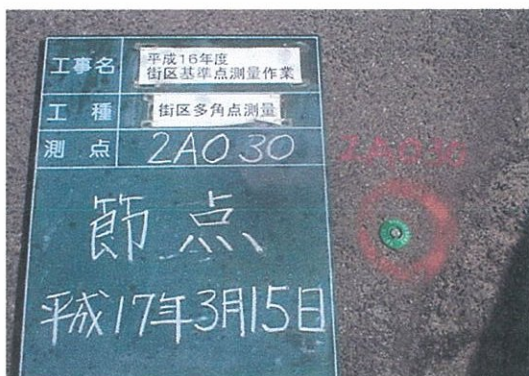 工事名 平成16年度
街区基準点測量作業
工種 街区多角点測量
測点 2A030
節点
平成17年3月15日
2A030